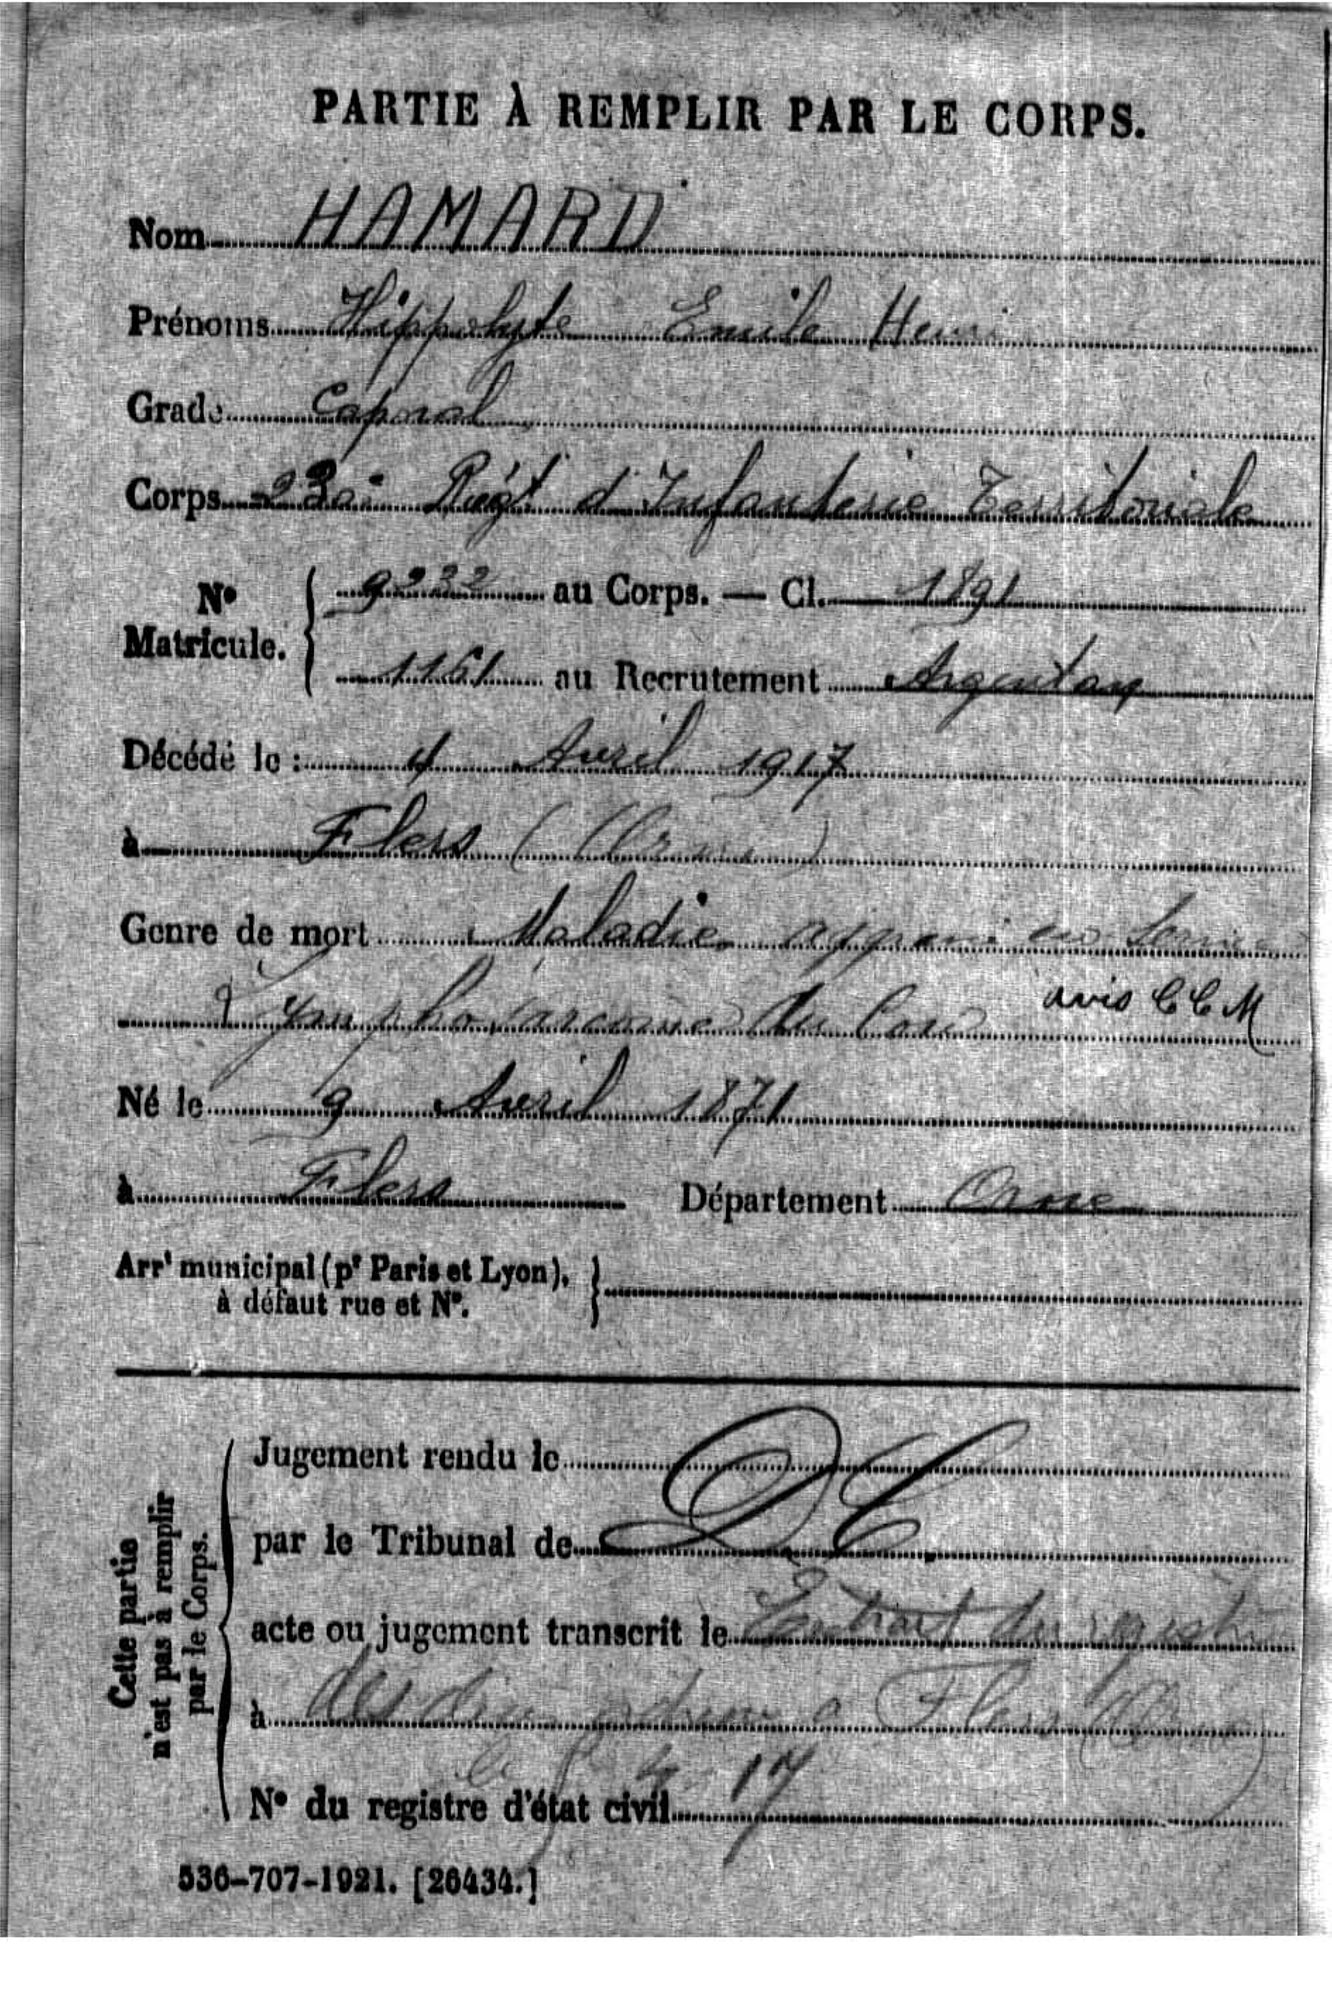 PARTIE À REMPLIR PAR LE CORPS.
Nom HAMARD
Prénoms Hippolyte Emile Henri
Grade Caporal
Corps 230e Régt d'Infanterie Territoriale
N° Matricule. 9232 au Corps. — Cl. 1891
1161 au Recrutement Argentan
Décédé le : 4 Avril 1917
à Flers (Orne)
Genre de mort Maladie en Service
Lymphosarcome du Cou avis CCM
Né le 9 Avril 1871
à Flers Département Orne
Arrt municipal (pr Paris et Lyon),
à défaut rue et N°.
Cette partie
n'est pas à remplir
par le Corps.
Jugement rendu le
par le Tribunal de D.C.
acte ou jugement transcrit le Extrait du registre
à des à Flers (Orne)
le 4 17
N° du registre d'état civil
536-707-1921. [26434.]